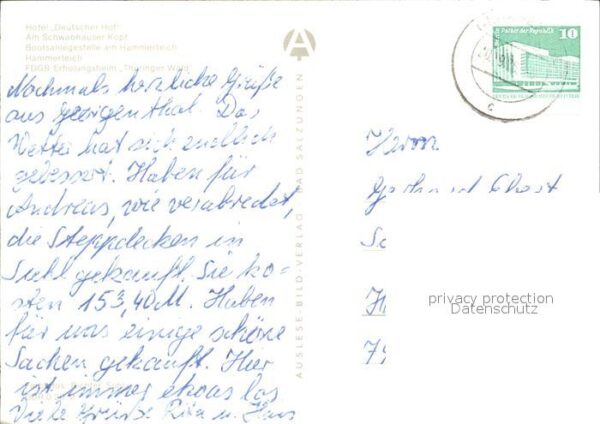 Hotel „Deutscher Hof"
Am Schwabhäuser Kopf
Bootsanlegestelle am Hammerteich
Hammerteich
FDGB-Erholungsheim „Thüringer Wald"
Nochmals herzliche Grüße
aus Georgenthal. Das
Wetter hat sich endlich
gebessert. Haben für
Andreas, wie verabredet,
die Steppdecken in
Suhl gekauft. Sie ko-
sten 153,40M. Haben
für uns einige schöne
Sachen gekauft. Hier
ist immer etwas los.
Viele Grüße Rita u. Hans
AUSLESE-BILD-VERLAG BAD SALZUNGEN
Palast der Republik 10
Herrn
Gerhard
privacy protection
Datenschutz